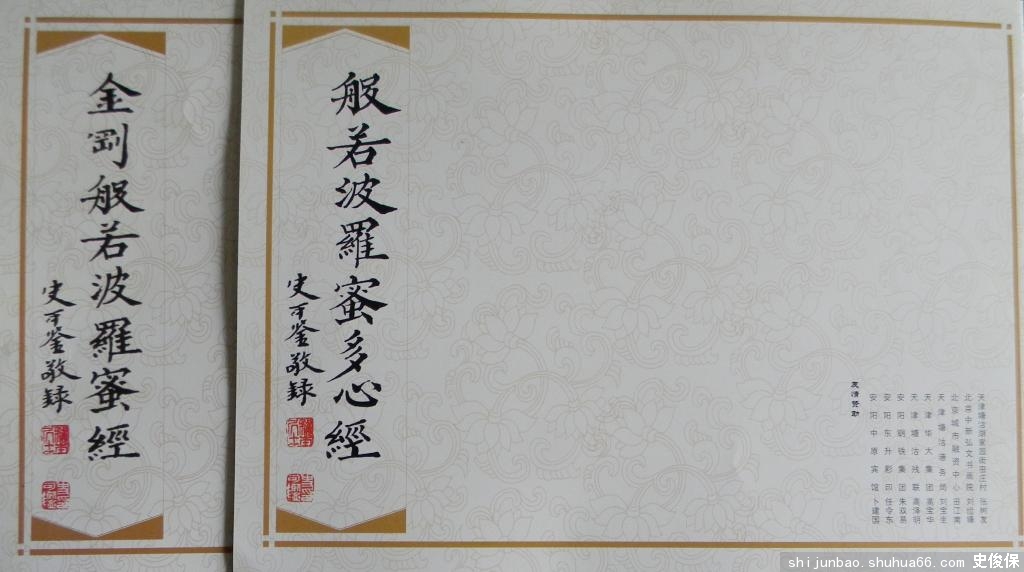 金剛般若波羅蜜經
史可鉴敬録
般若波羅蜜多心經
史可鉴敬録
友情赞助
天津塘沽胡家园街田庄村 张树发
北京中新弘文书画院 刘世锋
北京城市融资中心 田江南
天津塘沽港务局 刘宝生
天津华大集团 高宝华
天津塘沽残联 高泽明
安阳钢铁集团 朱双易
安阳东升彩印 任令东
安阳中原宾馆 卜建国
shijunbao.shuhua66.com 史俊保